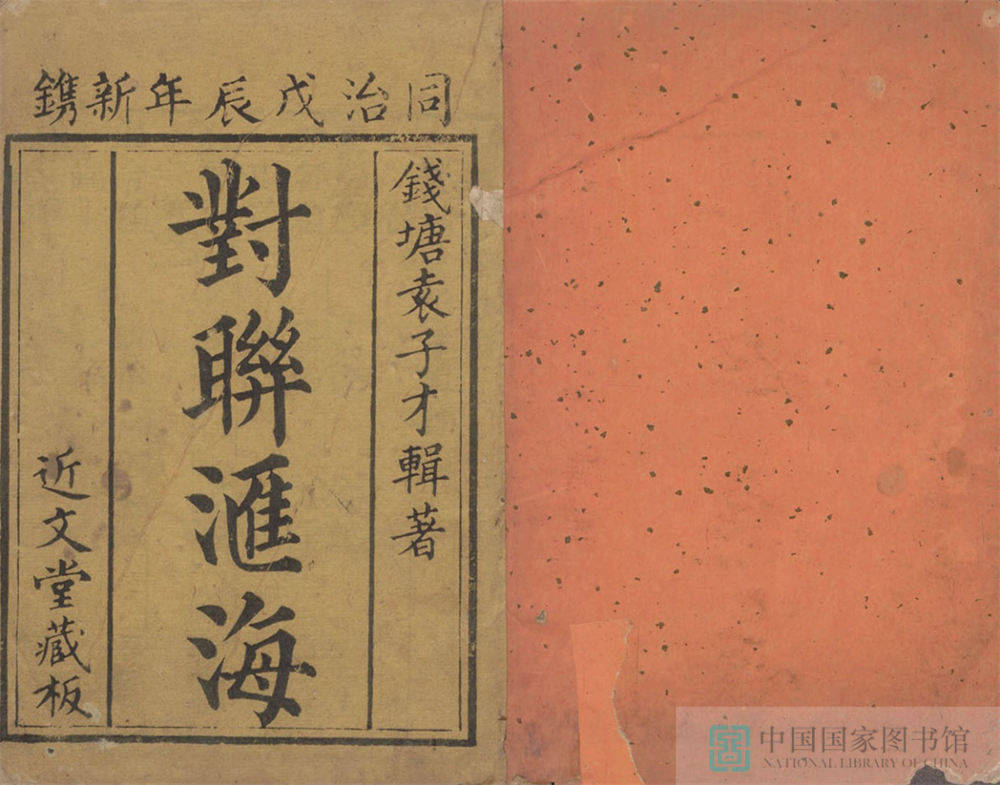 同治戊辰年新鐫
錢塘袁子才輯著
對聯滙海
近文堂藏板
中国国家图书馆
NATIONAL LIBRARY OF CHINA